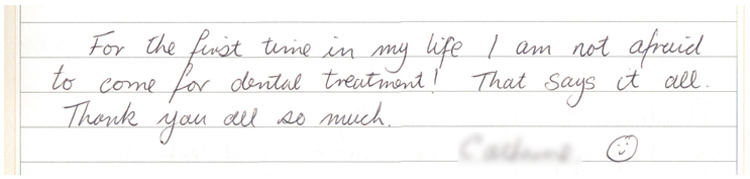 For the first time in my life I am not afraid
to come for dental treatment! That says it all.
Thank you all so much.